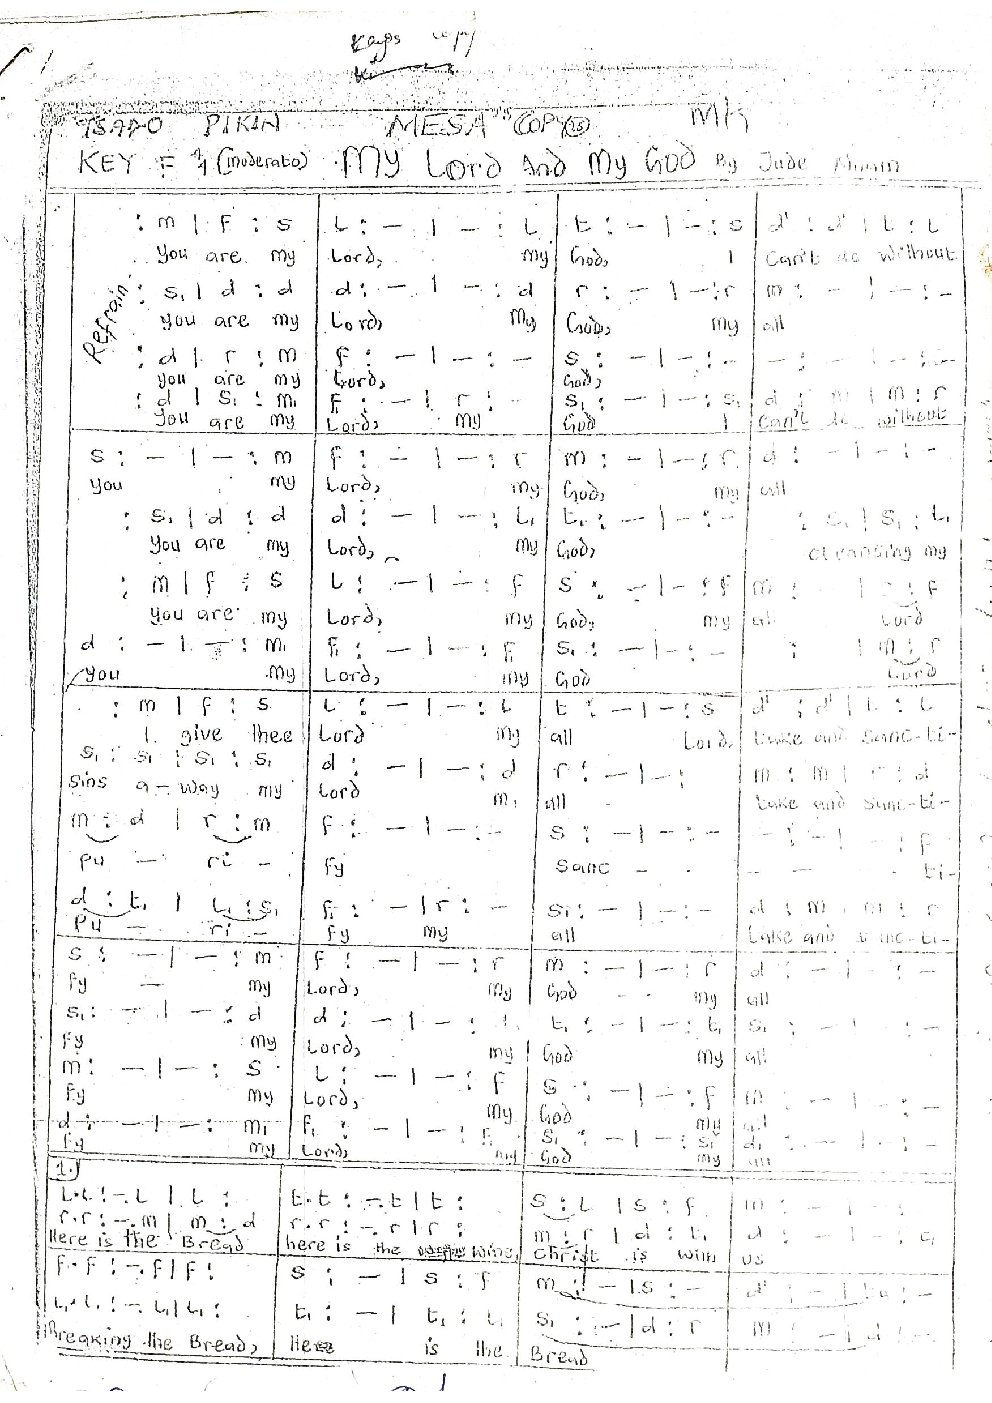 Kays copy
TSADO PIKIN MESA'S COPY M/S
KEY F (moderato) My Lord And My God By Jude
Refrain
: m | f : s L : – | – : L t : – | – : s d' : d' | L : L
You are my Lord, my God, I Can't do without
: s₁ | d : d d : – | – : d r : – | – : r m : – | – : –
You are my Lord, my God, my all
: d | r : m f : – | – : – s : – | – : – – : – | – : –
you are my Lord, God,
: d | s₁ : m₁ f₁ : – | r : – s₁ : – | – : s₁ d : m | m : r
You are my Lord, my God I Can't do without
s : – | – : m f : – | – : r m : – | – : r d : – | – : –
you my Lord, my God, my all
: s₁ | d : d d : – | – : L₁ t₁ : – | – : – : s₁ | s₁ : L₁
You are my Lord, my God, cleansing my
: m | f : s L : – | – : f s : – | – : f f m : | r : f
you are my Lord, my God, my all Lord
d : – | – : m₁ f₁ : – | – : f₁ s₁ : – | – : – : | m : r
you my Lord, my God Lord
: m | f : s L : – | – : L t : – | – : s d' : d' | L : L
I give thee Lord my all Lord, take and sanc-ti-
s₁ : s₁ | s₁ : s₁ d : – | – : d r : – | – : m : m | r : d
sins a – way my Lord all take and sanc-ti-
m : d | r : m f : – | – : – s : – | – : – – : – | – : f
pu – ri – fy sanc - - - - ti-
d : t₁ | L₁ : s₁ f₁ : – | r : – s₁ : – | – : – d : m | m : r
pu – ri – fy my all take and sanc-ti-
s : – | – : m f : – | – : r m : – | – : r d : – | – : –
fy – my Lord, my God - - my all
s₁ : – | – : d d : – | – : t₁ : – | – : t₁ s₁ : – | – : –
fy my Lord, my God my all
m : – | – : s L : – | – : f s : – | – : f m : – | – : –
fy my Lord, my God my all
d : – | – : m₁ f₁ : – | – : f₁ s₁ : – | – : s₁ d₁ : – | – : –
fy my Lord, my God my all
1.
L.L : –.L | L : t.t : –.t | t : s : L | s : f m : – | – :
r.r : –.m | m : d r.r : –.r | r : m : r | d : t₁ d : – | – :
Here is the Bread here is the wine, Christ is with us
f.f : –.f | f : s : – | s : f m : – | s : – d' : – | ta : –
L₁.L₁ : –.L₁ | L₁ : t₁ : – | t₁ : L₁ s₁ : – | d : r m : – | d : –
Breaking the Bread, Here is the Bread